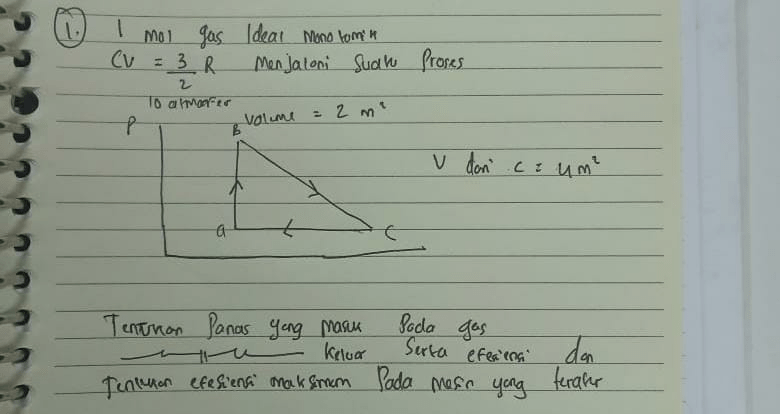 1. 1 mol gas Ideal monotomik
CV = 3/2 R Menjalani Suatu Proses
10 atmosfer
P
B
Volume = 2 m²
V dari C = 4m²
a
C
Tentukan Panas yang masuk Pada gas
—〃— Keluar Serta efesiensi dan
Tentukan efesiensi maksimum Pada mesin yang teratur